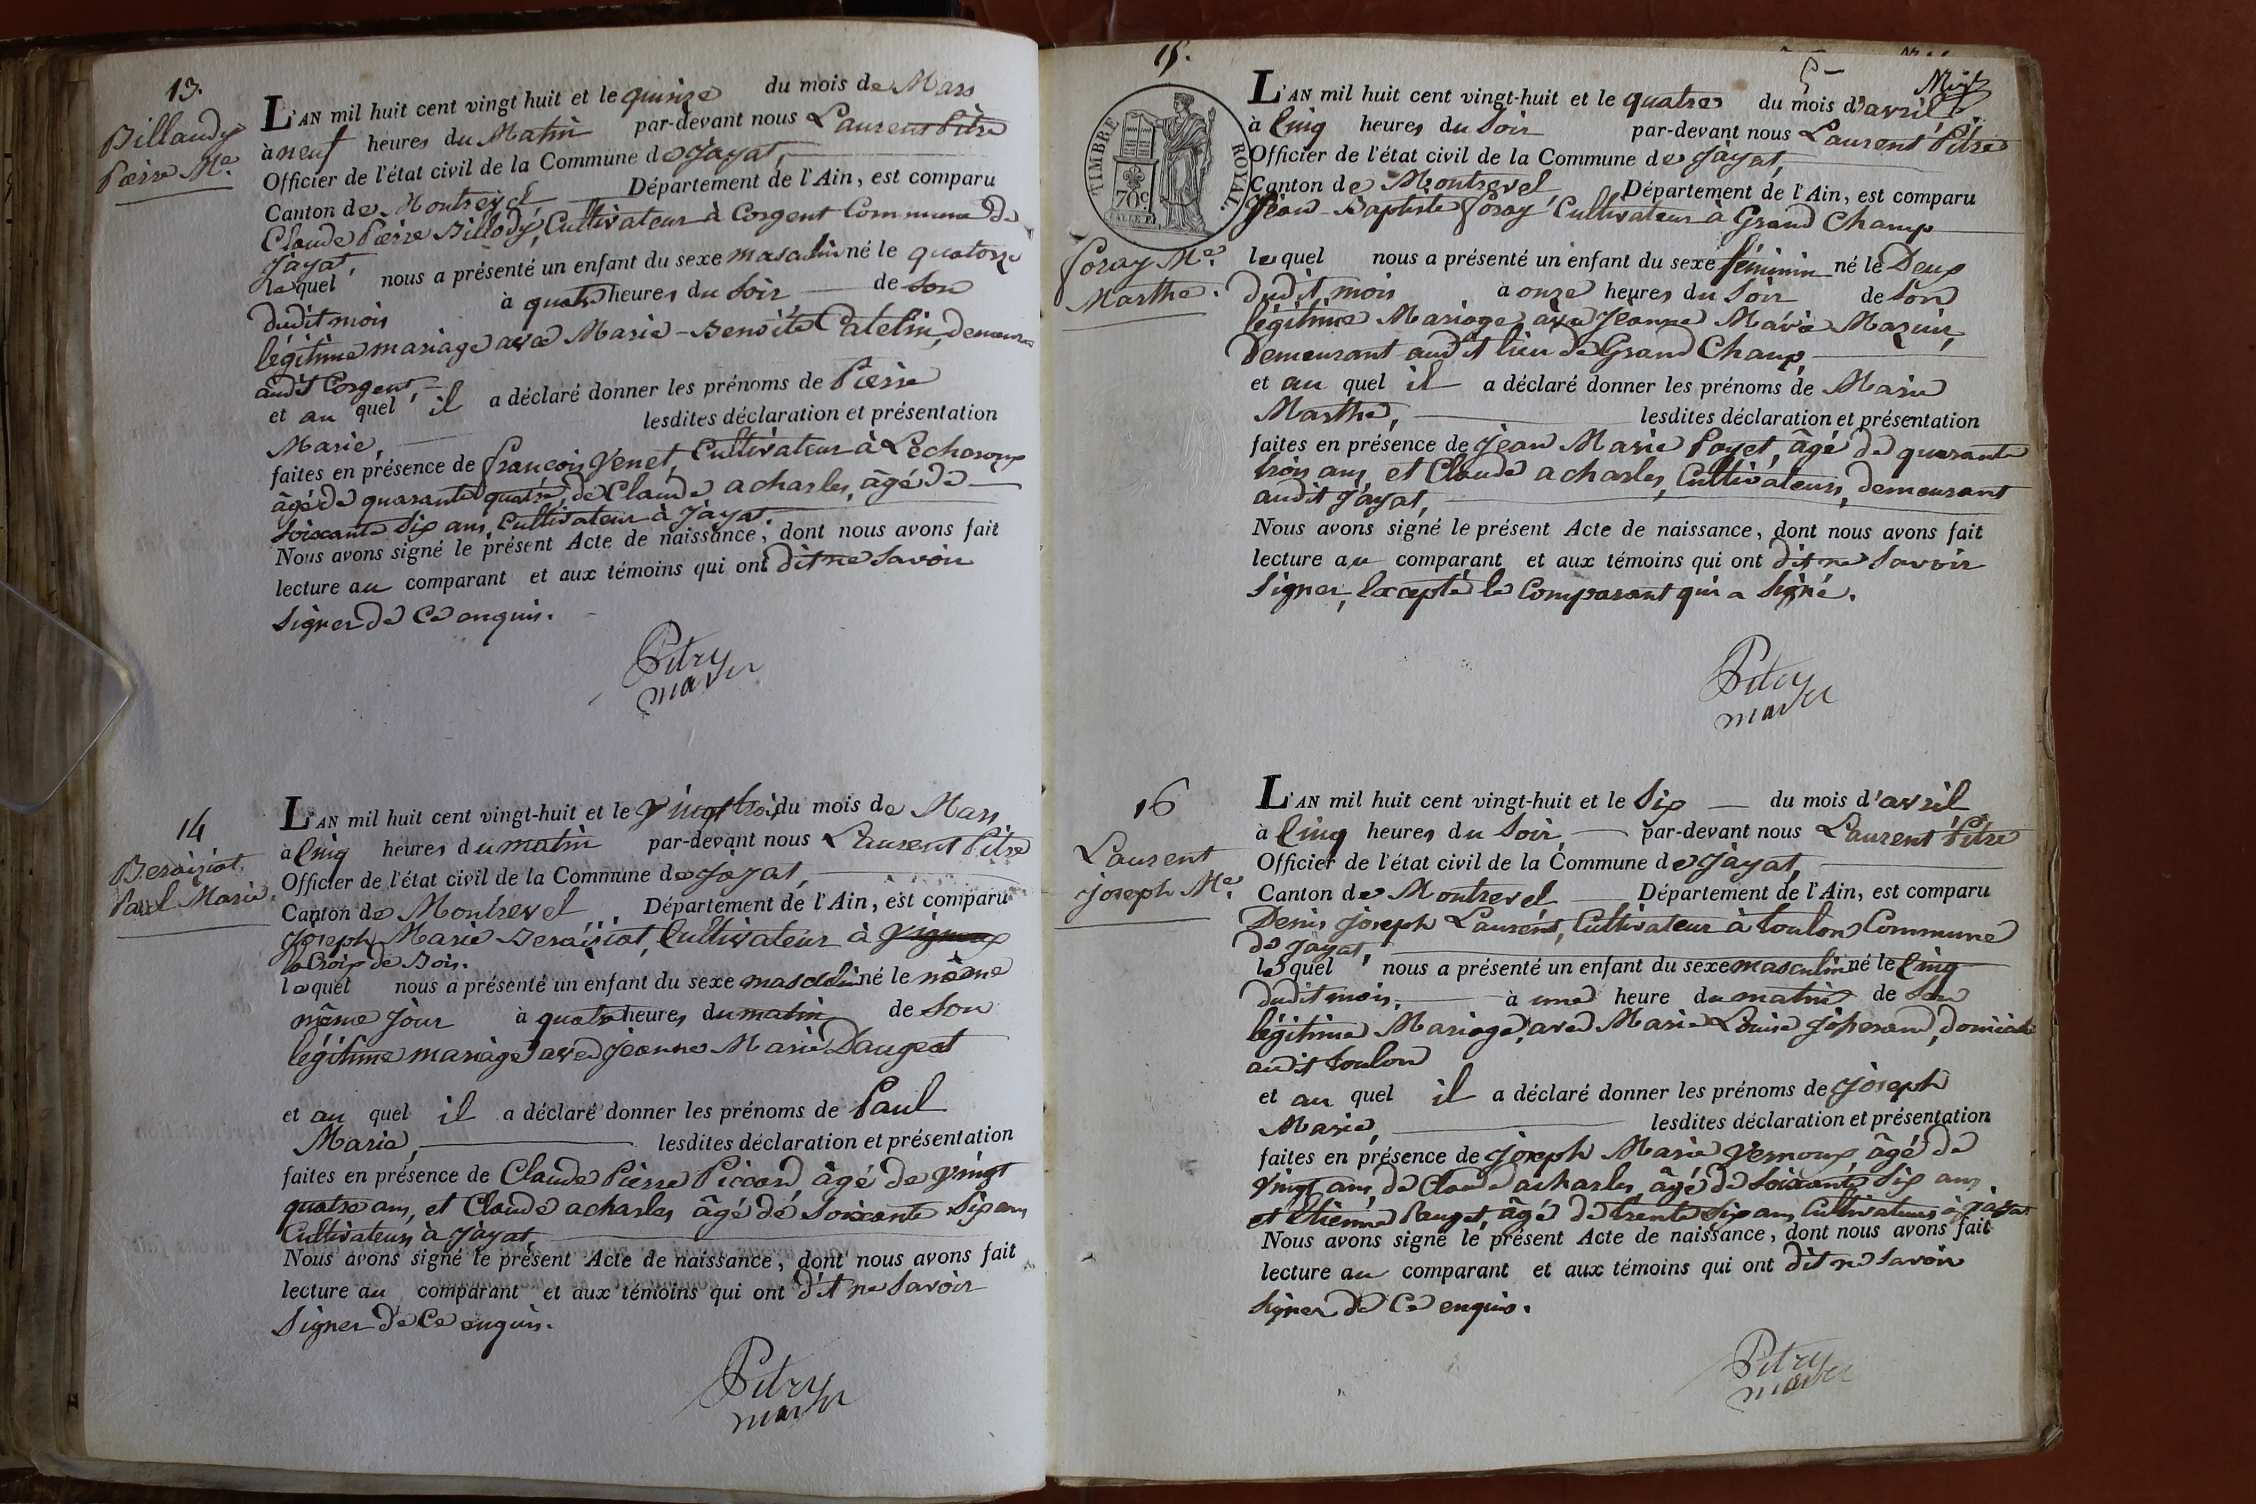 13.
Billaudy
Pierre Mie.
L'AN mil huit cent vingt huit et le quinze du mois de Mars
à neuf heures du Matin par-devant nous Laurent Pitre
Officier de l'état civil de la Commune de Jayat,
Canton de Montrevel Département de l'Ain, est comparu
Claude Pierre Billody, Cultivateur à Corgent Commune de
Jayat,
lequel nous a présenté un enfant du sexe masculin né le quatorze
dudit mois à quatre heures du Soir de Son
légitime mariage avec Marie-Benoite Patelin, demeurant
audit Corgent,
et au quel il a déclaré donner les prénoms de Pierre
Marie, lesdites déclaration et présentation
faites en présence de françois Venet, Cultivateur à
âgé de quarante quatre, de Claude acharles, âgé de
Soixante Six ans, Cultivateur à Jayat.
Nous avons signé le présent Acte de naissance, dont nous avons fait
lecture au comparant et aux témoins qui ont dit ne Savoir
Signer de Ce enquis.
Pitre
14
Beraiziat
Paul Marie.
L'AN mil huit cent vingt-huit et le Vingt trois du mois de Mars
à Cinq heures du matin par-devant nous Laurent Pitre
Officier de l'état civil de la Commune de Jayat,
Canton de Montrevel Département de l'Ain, est comparu
Joseph Marie Beraiziat, Cultivateur à
la Croix de Bois.
lequel nous a présenté un enfant du sexe masculin né le même
même Jour à quatre heures du matin de Son
légitime mariage avec Jeanne Marie Daugeat
et au quel il a déclaré donner les prénoms de Paul
Marie, lesdites déclaration et présentation
faites en présence de Claude Pierre Piccard, âgé de Vingt
quatre ans, et Claude acharles âgé de Soixante Six ans
Cultivateurs à Jayat,
Nous avons signé le présent Acte de naissance, dont nous avons fait
lecture au comparant et aux témoins qui ont dit ne Savoir
Signer de Ce enquis.
Pitre
15.
TIMBRE ROYAL.
70c.
foray Mie.
Marthe.
L'AN mil huit cent vingt-huit et le quatre du mois d'avril,
à Cinq heures du Soir par-devant nous Laurent Pitre
Officier de l'état civil de la Commune de Jayat,
Canton de Montrevel Département de l'Ain, est comparu
Jean-Baptiste foray Cultivateur à Grand Champ
lequel nous a présenté un enfant du sexe féminin né le Deux
dudit mois à onze heures du Soir de Son
légitime Mariage avec Jeanne Marie Mazuir,
demeurant audit lieu de Grand Champ,
et au quel il a déclaré donner les prénoms de Marie
Marthe, lesdites déclaration et présentation
faites en présence de Jean Marie Poget, âgé de quarante
trois ans, et Claude acharles, Cultivateurs, demeurant
audit Jayat,
Nous avons signé le présent Acte de naissance, dont nous avons fait
lecture au comparant et aux témoins qui ont dit ne Savoir
Signer, Excepté le Comparant qui a Signé.
Pitre
16
Laurent
Joseph Mie.
L'AN mil huit cent vingt-huit et le Six du mois d'avril
à Cinq heures du Soir, par-devant nous Laurent Pitre
Officier de l'état civil de la Commune de Jayat,
Canton de Montrevel Département de l'Ain, est comparu
Denis Joseph Laurent, Cultivateur à toulon Commune
de Jayat,
lequel nous a présenté un enfant du sexe masculin né le Cinq
dudit mois, à une heure du matin de Son
légitime Mariage, avec Marie Louise Joperand, domiciliée
audit toulon
et au quel il a déclaré donner les prénoms de Joseph
Marie, lesdites déclaration et présentation
faites en présence de Joseph Marie Vernoux, âgé de
Vingt ans, de Claude acharles, âgé de Soixante Six ans
et Etienne Pauget, âgé de trente Six ans, Cultivateurs à Jayat
Nous avons signé le présent Acte de naissance, dont nous avons fait
lecture au comparant et aux témoins qui ont dit ne Savoir
Signer de Ce enquis.
Pitre